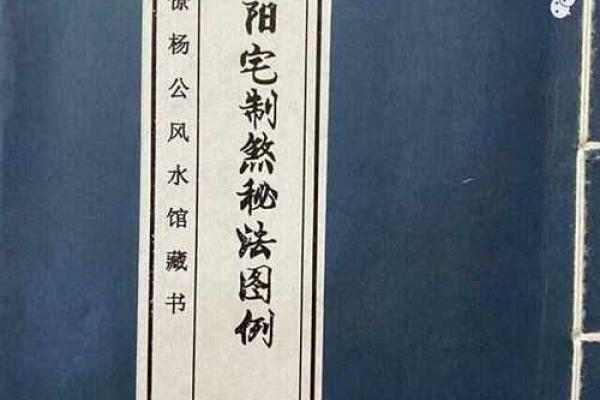 阳宅制煞秘法图例
杨公风水馆藏书